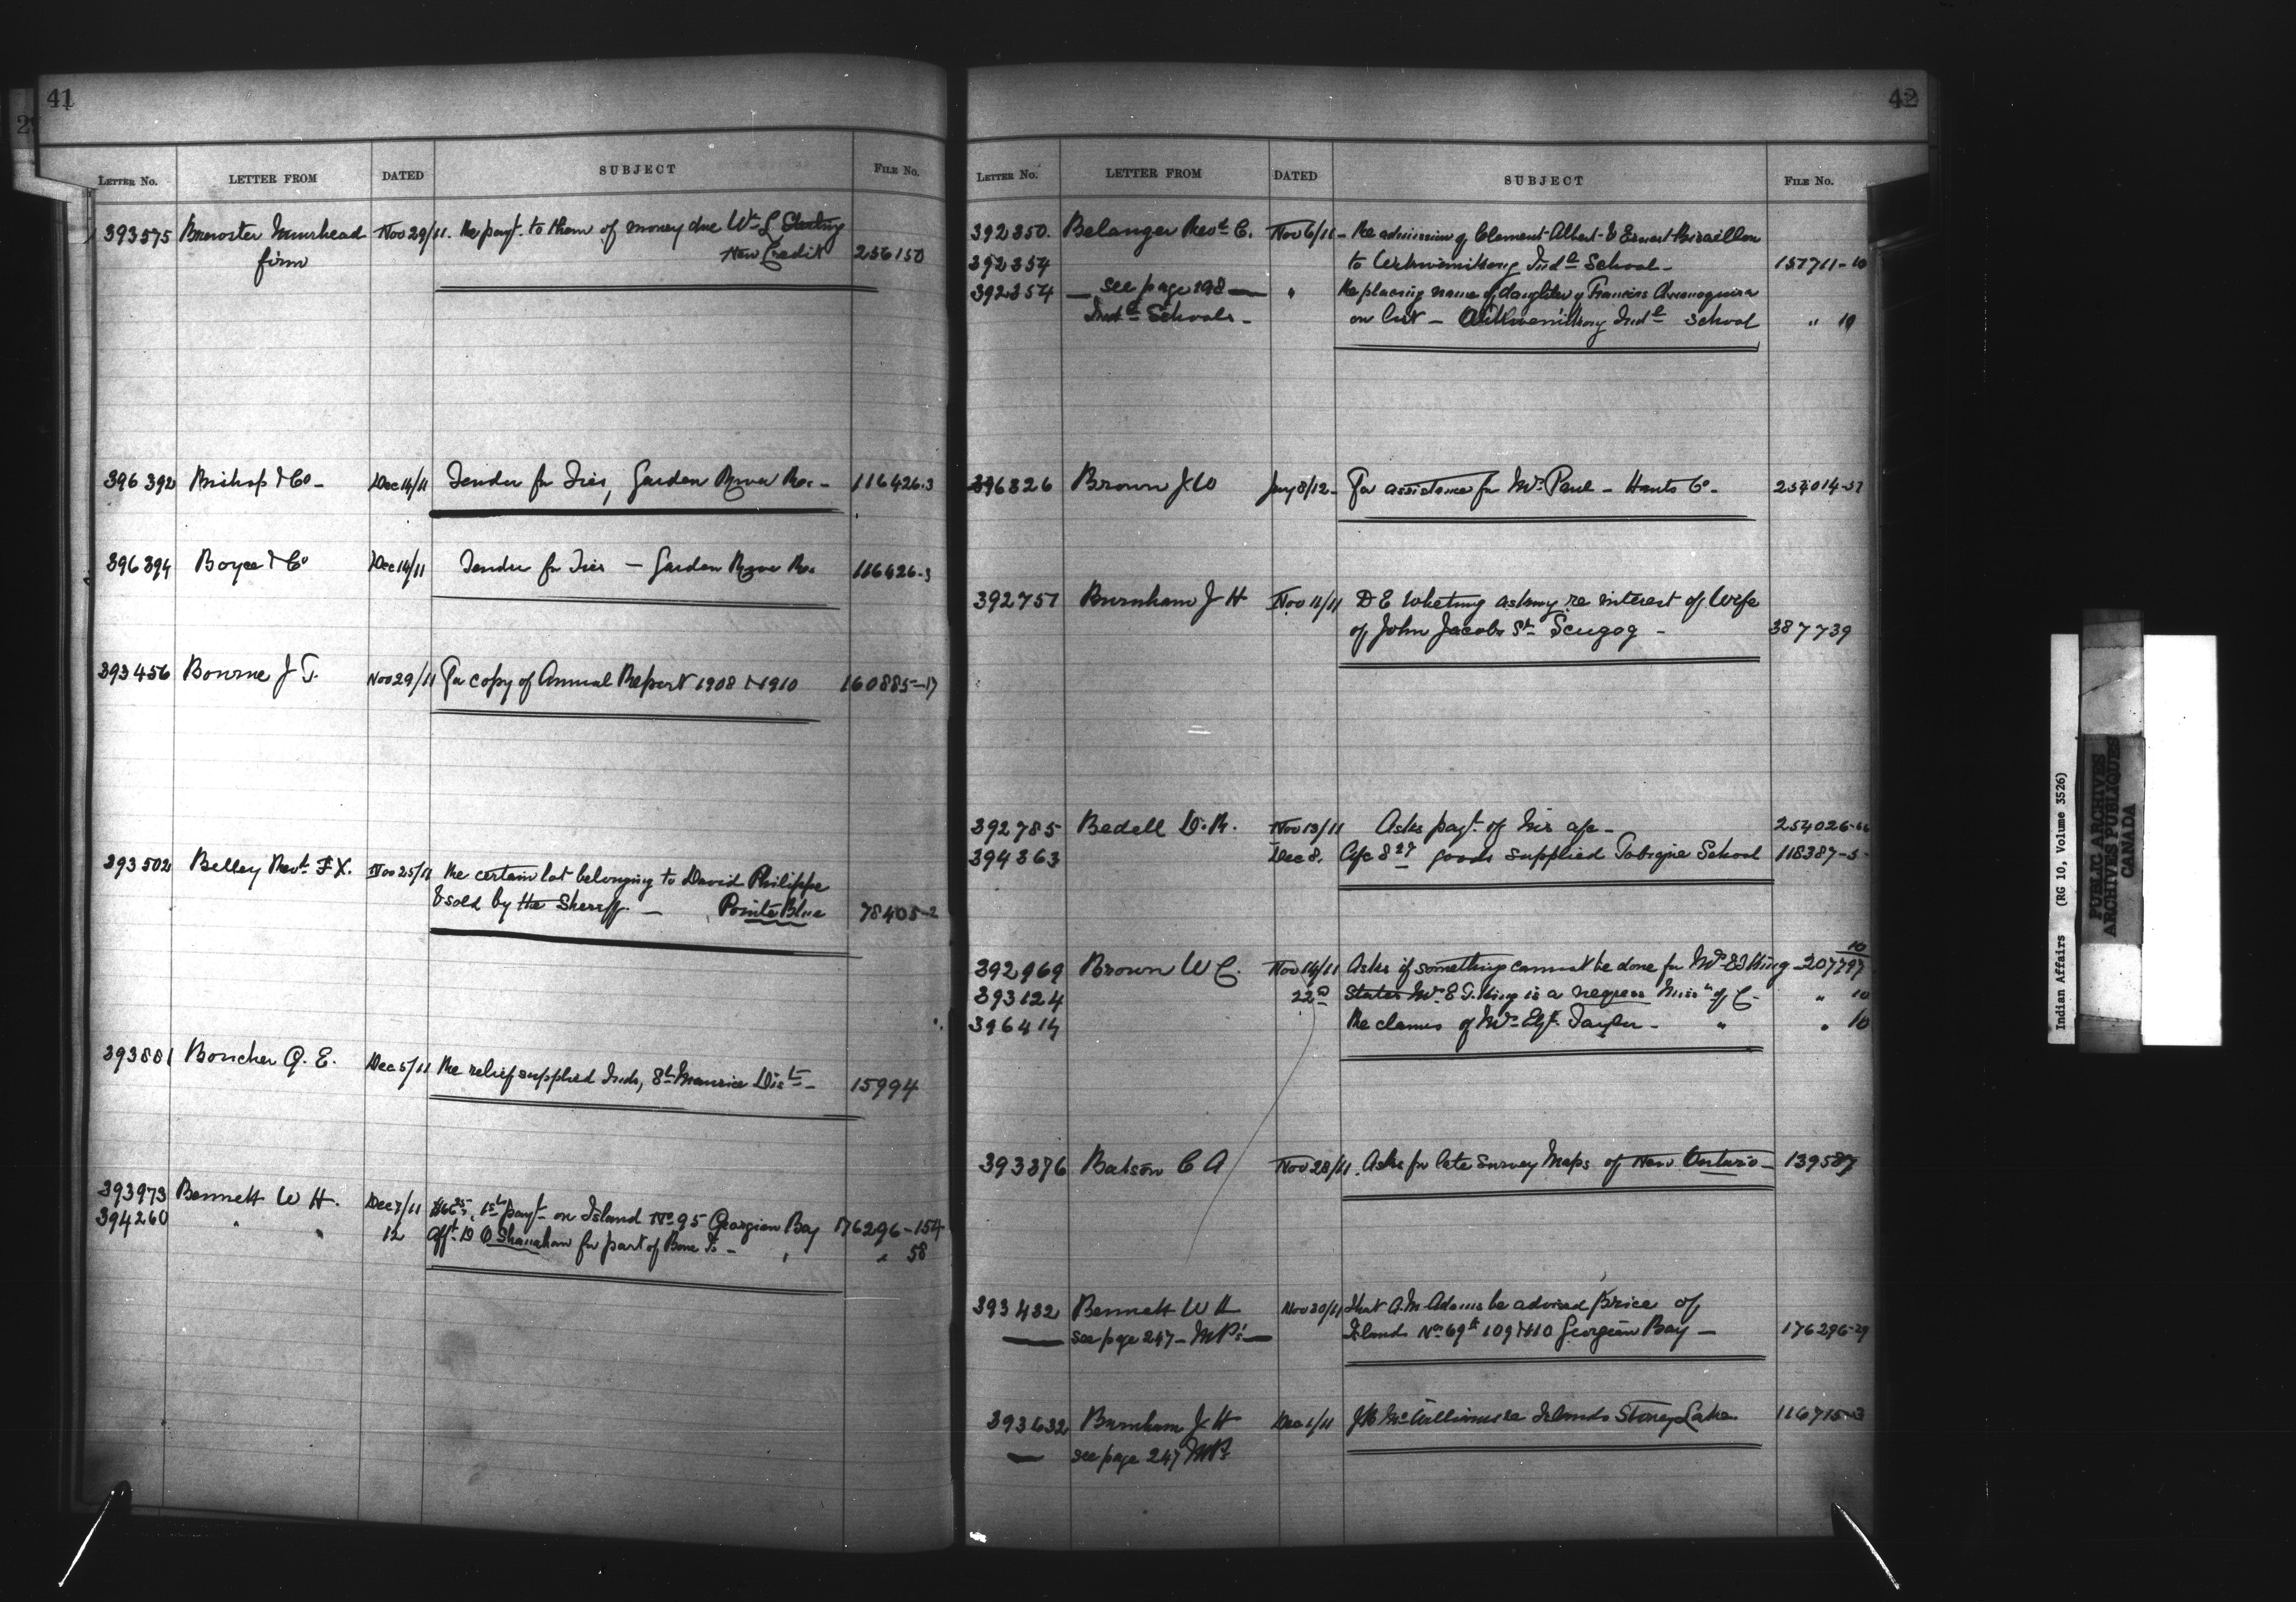 41
LETTER No. LETTER FROM DATED SUBJECT FILE No.
393575 Brewster Muirhead Nov 29/11. Re payt. to them of money due Wm L
firm New Credit 256150
396392 Bishop & Co - Dec 14/11 Tender for Ties, Garden River Re. - 116426-3
396394 Boyce & Co Dec 14/11 Tender for Ties - Garden River Re. 116426-3
393456 Bourne J T. Nov 29/11 For copy of Annual Report 1908 & 1910 160885-17
393502 Belley Revd. F X. Nov 25/11 Re certain lot belonging to David Philippe
& sold by the Sheriff. - Pointe Blue 78405-2
393881 Boucher Q. E. Dec 5/11 Re relief supplied Inds, St Maurice Dist - 15994
393973 Bennett W H. Dec 7/11 1st payt on Island No 95 Georgian Bay 176296-154
394260 " " 12 O Shanahan for part of Bone Is - " " 58
42
LETTER No. LETTER FROM DATED SUBJECT FILE No.
392350. Belanger Revd C. Nov 6/11 - Re admission of Clement Albert & Ernest
392354 to Wikwemikong Indl School - 157711-10
392354 — see page 298 — " Re placing name of daughter of Francis
Indl Schools - on list - Wikwemikong Indl School " 10
396326 Brown J W Jany 8/12 - For assistance for Mrs Paul - Hants Co. 254014-31
392751 Burnham J H Nov 11/11 D E Whetung asking re interest of Wife
of John Jacobs Sr Scugog - 387739
392785 Bedell D. R. Nov 13/11 Asks payt. of his a/c - 254026-
394363 Dec 8. A/c goods supplied Tobique School 115387-5
392969 Brown W C. Nov 14/11 Asks if something cannot be done for Mrs E T King - 207797 10
393124 22nd States Mrs E T. King is a negress Missn of C. " 10
396414 Re claims of Mrs Taylor - " " 10
393376 Batson C A Nov 28/11. Asks for late Survey Maps of New Ontario - 139587
393432 Bennett W H Nov 30/11 That A. M Adams be advised price of
— see page 247 - MPs' — Island Nos 69 109 & 110 Georgian Bay - 176296-29
393632 Burnham J H Dec 1/11 J B McWilliams re Islands Stoney Lake 116715-3
— see page 247 MPs
Indian Affairs (RG 10, Volume 3526)
PUBLIC ARCHIVES
ARCHIVES PUBLIQUES
CANADA